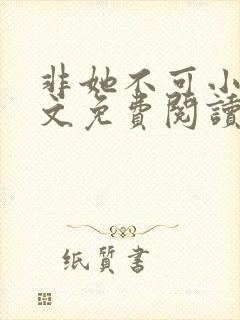 非她不可小
文免費閱讀
纸質書